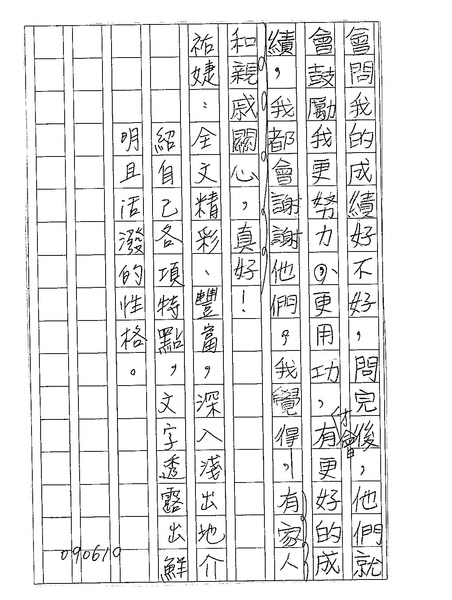 會問我的成績好不好，問完後，他們就
會鼓勵我更努力、更用功，才會有更好的成
績，我都會謝謝他們。我覺得，有家人
和親戚關心，真好！
祐婕：全文精彩、豐富，深入淺出地介
紹自己各項特點，文字透露出鮮
明且活潑的性格。
090610